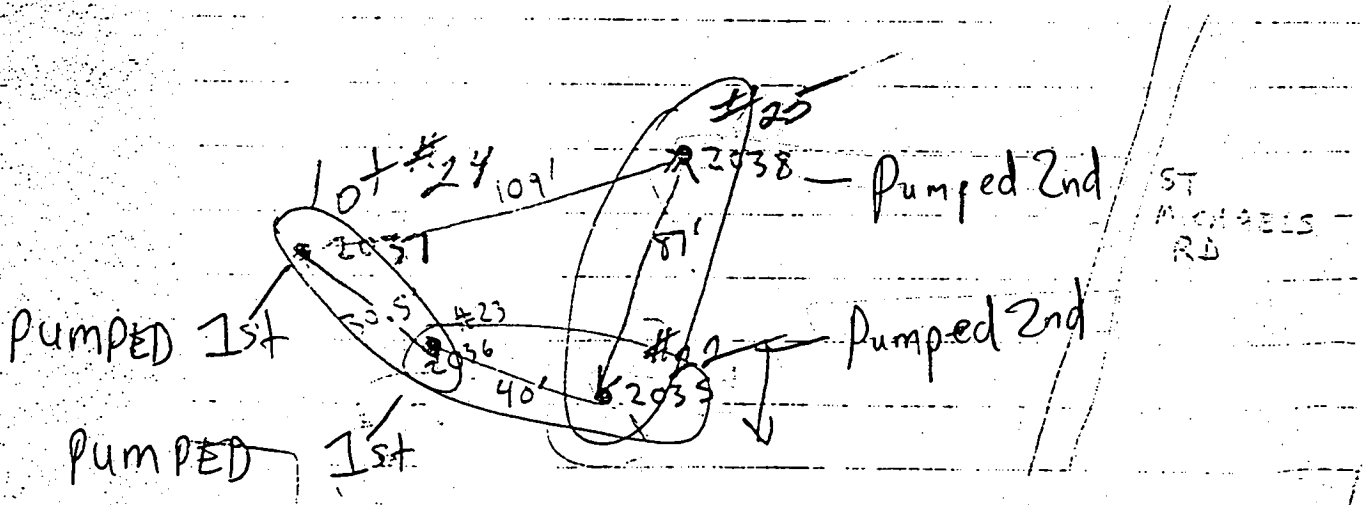 #25
Lot #24
109'
2038 - Pumped 2nd
ST
MICHAELS
RD
2037
87'
PUMPED 1st
#23
Pumped 2nd
2036
40'
2035
PUMPED 1st